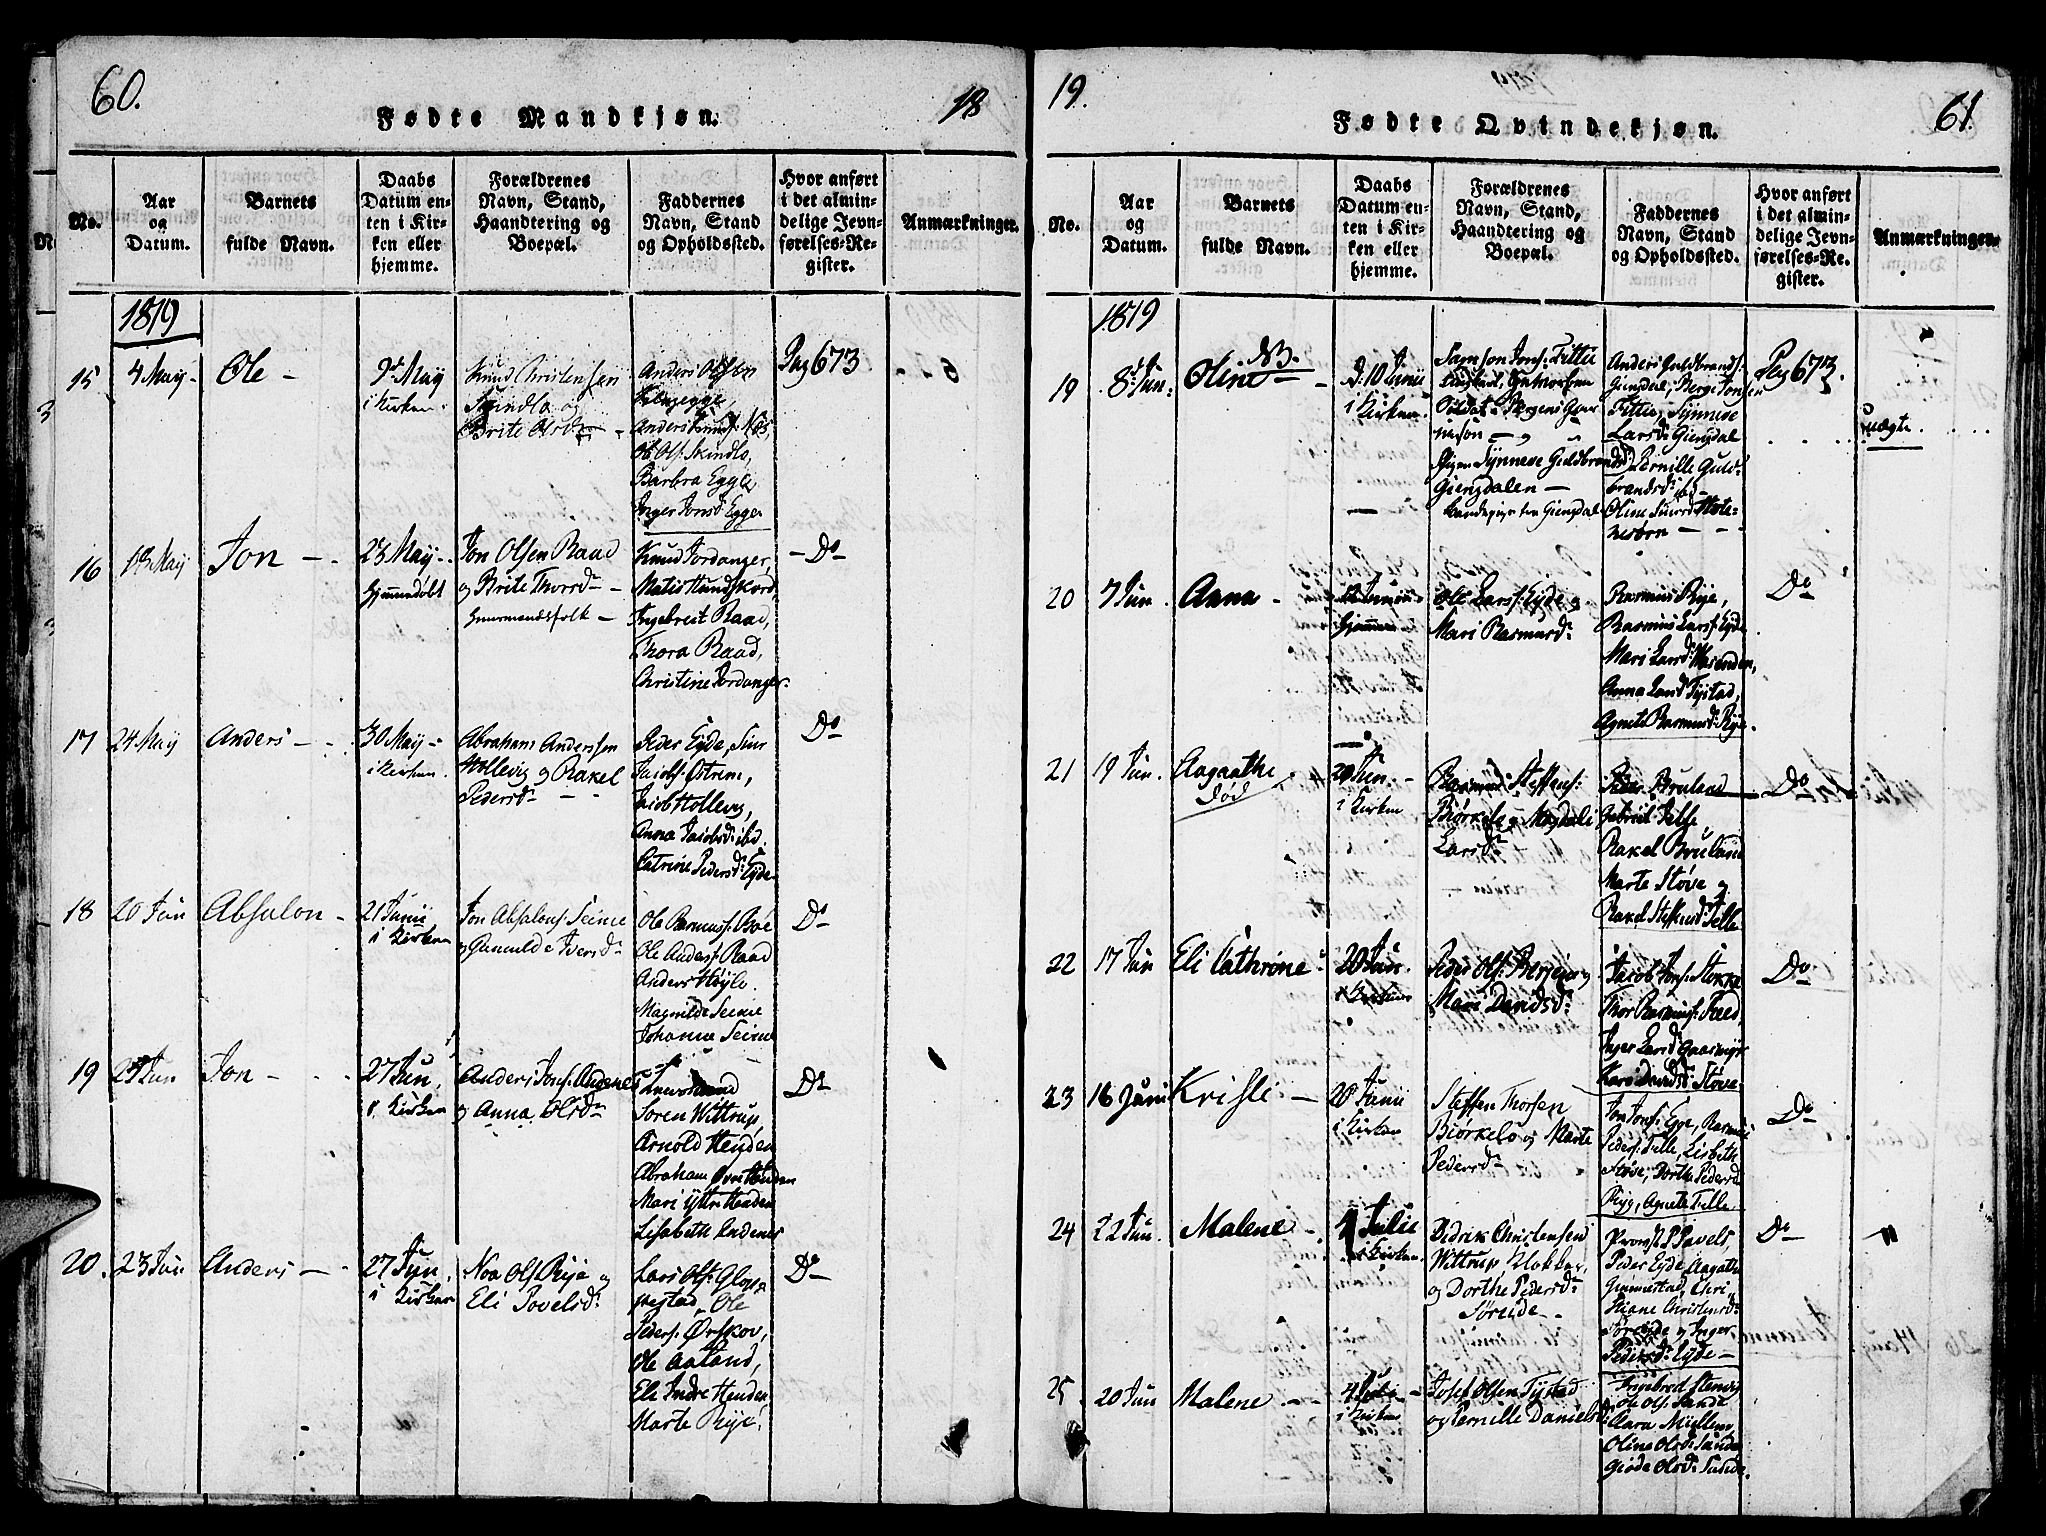 60.
Fødte Mandkjøn.
18
No.
Aar og Datum.
Barnets fulde Navn.
Daabs Datum enten i Kirken eller hjemme.
Forældrenes Navn, Stand, Haandtering og Boepæl.
Faddernes Navn, Stand og Opholdssted.
Hvor anført i det almindelige Jevnførelses-Register.
Anmærkninger.
1819
15
4 May
Ole
9d May
i Kirken
Knud Christensen
Skindlo og
Brite Olsd.
Anders Olsen
Anders Knuds.
Ole Ols. Skindlo,
Barbra Egge,
Inger Jonsd. Egge
Pag 673
16
18 May
Jon
23 May
Hjemmedøbt
Jon Olsen Raad
og Brite Thorsd.
Huusmandsfolk
Knud Jordanger,
Mats Hundskord,
Ingebreit Raad,
Thora Raad,
Christine Jordanger.
Do
17
24 May
Anders
30 May
i Kirken.
Abraham Andersen
Hollevig og Rakel
Pedersd.
Peder Eyde, Siur
Jacobs. Østrem,
Jacob Hollevig,
Anna Jacobsd. ibd.
Catrine Pedersd. Eyde
Do
18
20 Jun
Absalon
21 Junii
i Kirken
Jon Absalons. Seime
og Gunnilde Iversd.
Ole Rasmuss. Boe
Ole Anders. Raad
Anders Høylo.
Magnilde Seime
Johanne Seime
Do
19
Jun
Jon
27 Jun.
i Kirken
Anders Jons. Andenes
og Anna Olsd.
Soren Wittrup
Arnold Henden
Abraham Øvre Henden
Mari Yttre Henden
Lisabeth Andenes
Do
20.
23 Jun
Anders
27 Jun.
i Kirken
Noa Ols. Rye og
Eli Povelsd.
Lars Ols. Glop-
pestad, Ole
Peders. Ørskov,
Ole Aaland,
Eli Indre Henden
Marte Rye.
Do
19.
1819
61.
Fødte Qvindekjøn.
No.
Aar og Datum.
Barnets fulde Navn.
Daabs Datum enten i Kirken eller hjemme.
Forældrenes Navn, Stand, Haandtering og Boepæl.
Faddernes Navn, Stand og Opholdssted.
Hvor anført i det almindelige Jevnførelses-Register.
Anmærkninger.
1819
19
8d Jun.
NB.
Oline
d. 10 Junii
i Kirken
Samson Jons. Fittie
Soldat v. Bergens Gar-
nison
Pigen Synneve Guldbrandsd.
Giengdalen
Anders Guldbrands.
Giengdal, Berge Jonsen
Fittie, Synneve
Larsd. Giengdal
Pernille Guld-
brandsd. ibd.
Oline Siursd. Hole-
nesørn
Pag 673.
uægte.
20
7 Jun.
Anna
Junii
Hjemme
Ole Lars. Eyde og
Mari Rasmusd.
Rasmus Rye,
Rasmus Lars. Eyde
Mari Larsd.
Anna Lund Tystad,
Agnete Rasmusd. Rye.
Do
21
19 Jun.
Aagaathe
død
20 Jun.
i Kirken
Rasmus Steffens.
Biørkelo og Magdali
Larsd.
Peder Bruland
Gabriel Felle,
Rakel Bruland
Marte Støve og
Rakel Steffensd. Felle
Do
22
17 Jun
Eli Cathrine
20 Jun.
i Kirken
Peder Ols. Bergem og
Mari Davidsd.
Jacob Jons. Stokke
Thor Rasmuss. Foed,
Inger Larsd. Gaasmyr
Kari Davidsd. Støve.
Do
23
16 Juni
Kristi
20 Junii
i Kirken
Steffen Thorsen
Biørkelo og Marte
Pedersd.
Jon Jons. Egge, Rasmus
Peders. Felle, Lisbeth
Støve, Dorthe Pedersd.
Rygg, Agnete Felle
Do
24
22 Jun.
Malene
4 Julie
i Kirken.
Didrik Christensen
Wittrup Klokker,
og Dorthe Pedersd.
Søreide
Provst Pavels
Peder Eyde, Aagathe
Gimmestad, Chri-
stiane Christensd.
Søreide og Inger
Pedersd. Eyde
Do
25
20 Jun
Malene
4 Juli
i Kirken
Josef Olsen Tystad
og Pernille Danielsd.
Ole Ols. Sande
Clara Myklem
Oline Olsd. Sande
Giøda Olsd. Sande.